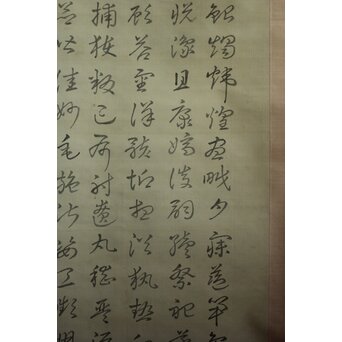 銀燭煒煌晝眠夕寐藍笋
悅豫且康嫡後嗣續祭祀
顧答審詳骸垢想浴執熱
捕獲叛亡布射遼丸嵇琴
並皆佳妙毛施淑姿工顰